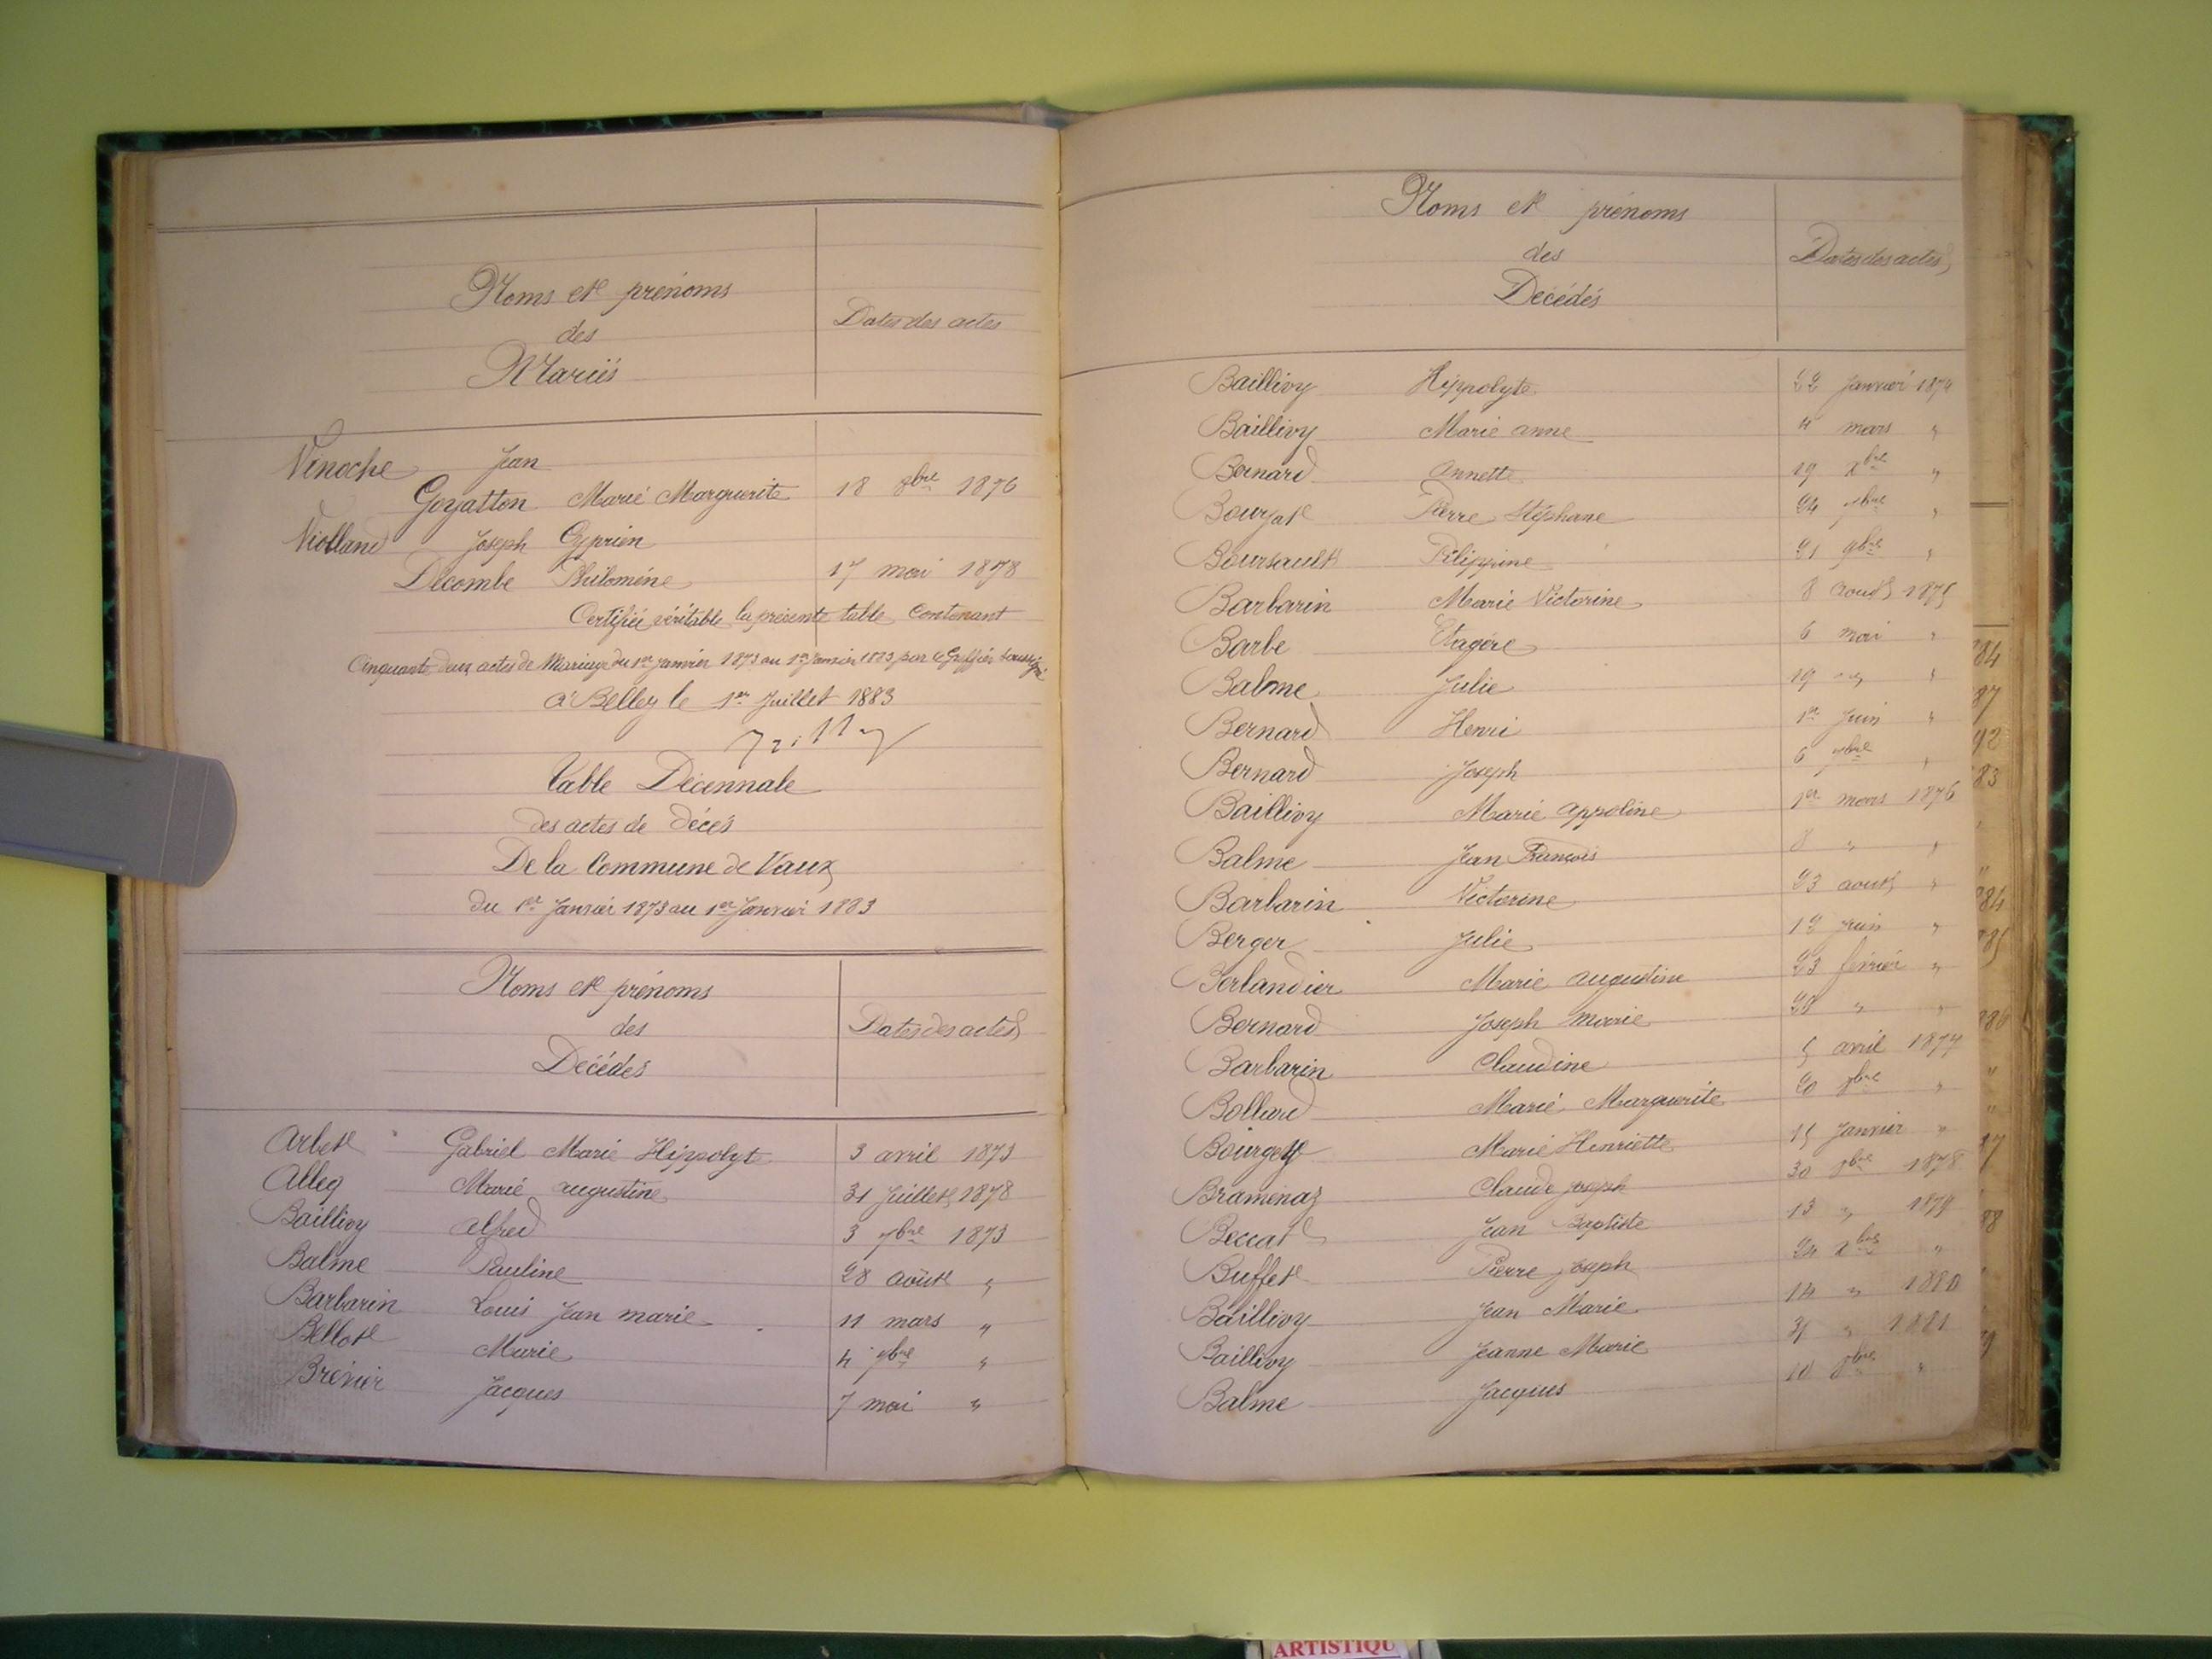 Noms et prénoms
des
Mariés
Dates des actes
Vinoche Jean
Goyatton Marie Marguerite 18 8bre 1876
Violland Joseph Cyprien
Décombe Philomène 17 mai 1878
Certifiée véritable la présente table contenant
Cinquante deux actes de Mariage du 1er janvier 1873 au 1er janvier 1883 par le Greffier soussigné
à Belley le 1er Juillet 1883
Table Décennale
des actes de décès
De la Commune de Vaux
du 1er Janvier 1873 au 1er Janvier 1883
Noms et prénoms
des
Décédés
Dates des actes
Arbet Gabriel Marie Hippolyte 3 avril 1873
Alleg Marie augustine 31 Juillet 1878
Baillivy alfred 3 7bre 1873
Balme Pauline 28 août "
Barbarin Louis Jean marie 11 mars "
Bellot Marie 4 7bre "
Brévier Jacques 7 mai "
Noms et prénoms
des
Décédés
Dates des actes
Baillivy Hippolyte 22 janvier 1874
Baillivy Marie anne 4 mars "
Bernard annette 19 xbre "
Bourjat Pierre Stéphane 24 7bre "
Boursault Filippine 21 9bre "
Barbarin Marie Victorine 8 aout 1875
Barbe Etagère 6 mai "
Balme Julie 19 "
Bernard Henri 1er Juin "
Bernard Joseph 6 7bre "
Baillivy Marie appoline 1er mars 1876
Balme Jean François 8 " "
Barbarin Victorine 23 aout "
Berger Julie 12 juin "
Berlandier Marie augustine 23 février "
Bernard Joseph Marie 28 " "
Barbarin Claudine 5 avril 1877
Bollard Marie Marguerite 20 8bre "
Bourget Marie Henriette 15 Janvier "
Braminaz Claude joseph 30 8bre 1878
Beccat Jean Baptiste 13 " 1879
Buffet Pierre Joseph 24 xbre "
Baillivy Jean Marie 14 " 1880
Baillivy Jeanne Marie 31 " 1881
Balme Jacques 10 8bre "
84
87
92
83
84
85
86
17
88
ARTISTIQU